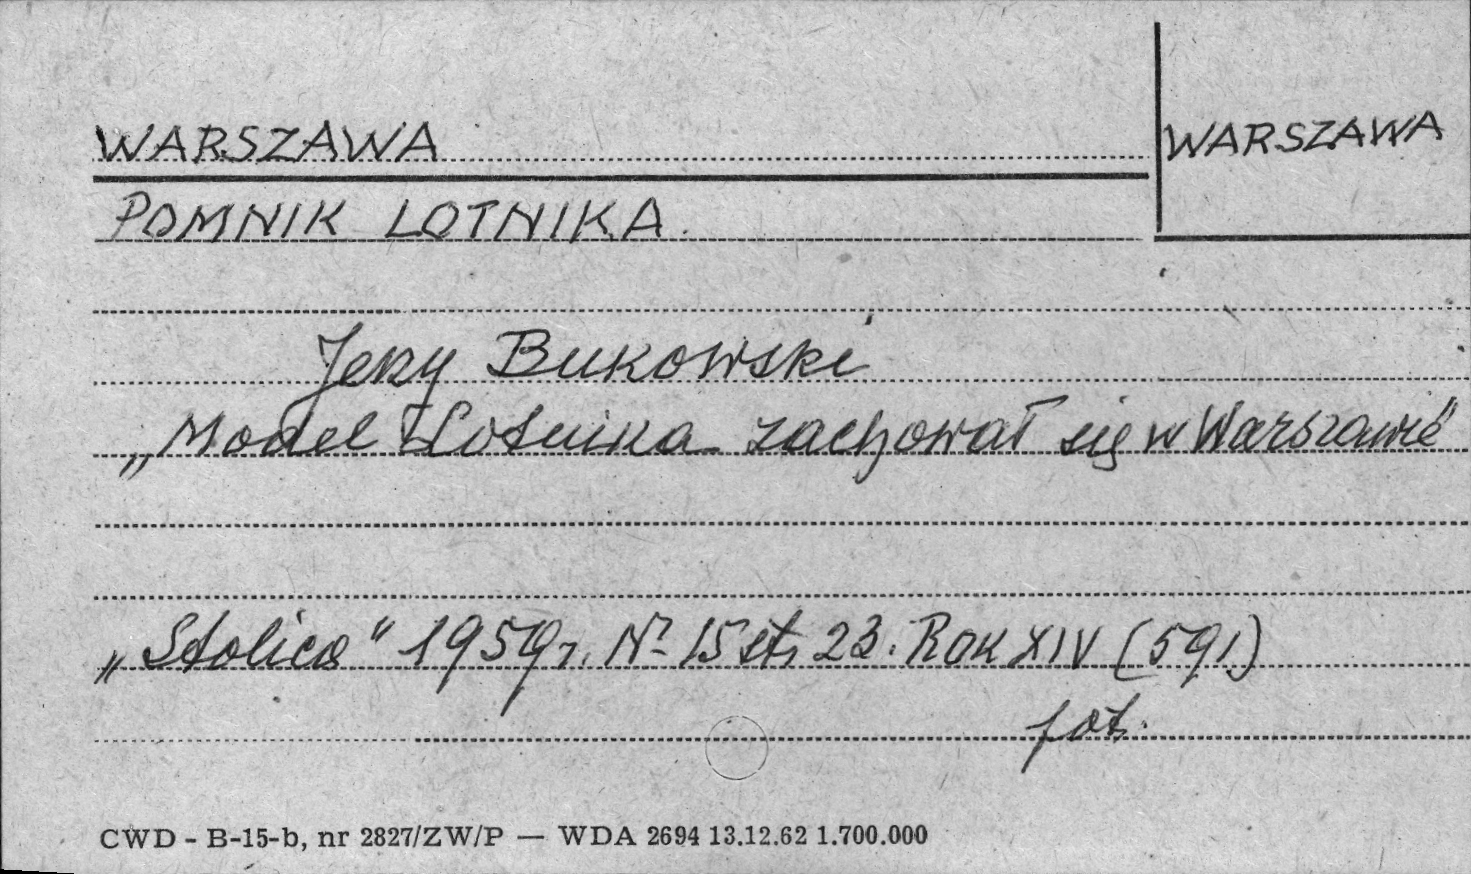 WARSZAWA
WARSZAWA
POMNIK LOTNIKA.
Jerzy Bukowski
„Model Lotnika zachował się w Warszawie"
„Stolica" 1959 r. Nr 15 str. 23. Rok XIV (591)
fot.
CWD - B-15-b, nr 2827/ZW/P — WDA 2694 13.12.62 1.700.000